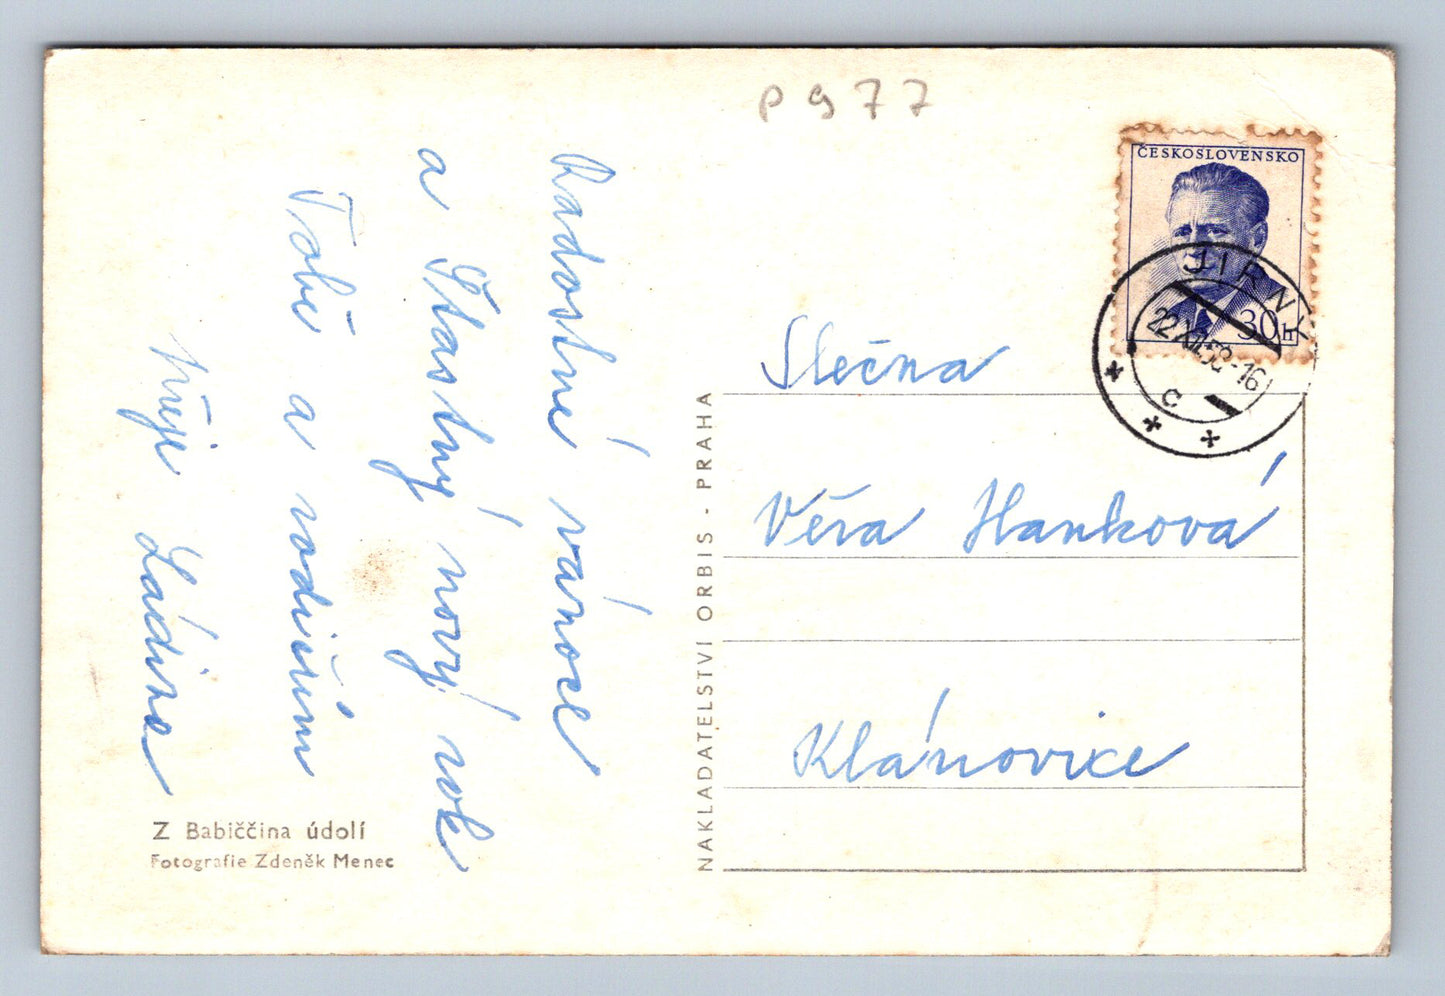 P977
ČESKOSLOVENSKO
30h
JIRNY
22.XII.58-16
c
Radostné vánoce
a šťastný nový rok
Tobě a rodičům
přeje Ládina
Slečna
Věra Hanková
Klánovice
NAKLADATELSTVÍ ORBIS - PRAHA
Z Babiččina údolí
Fotografie Zdeněk Menec